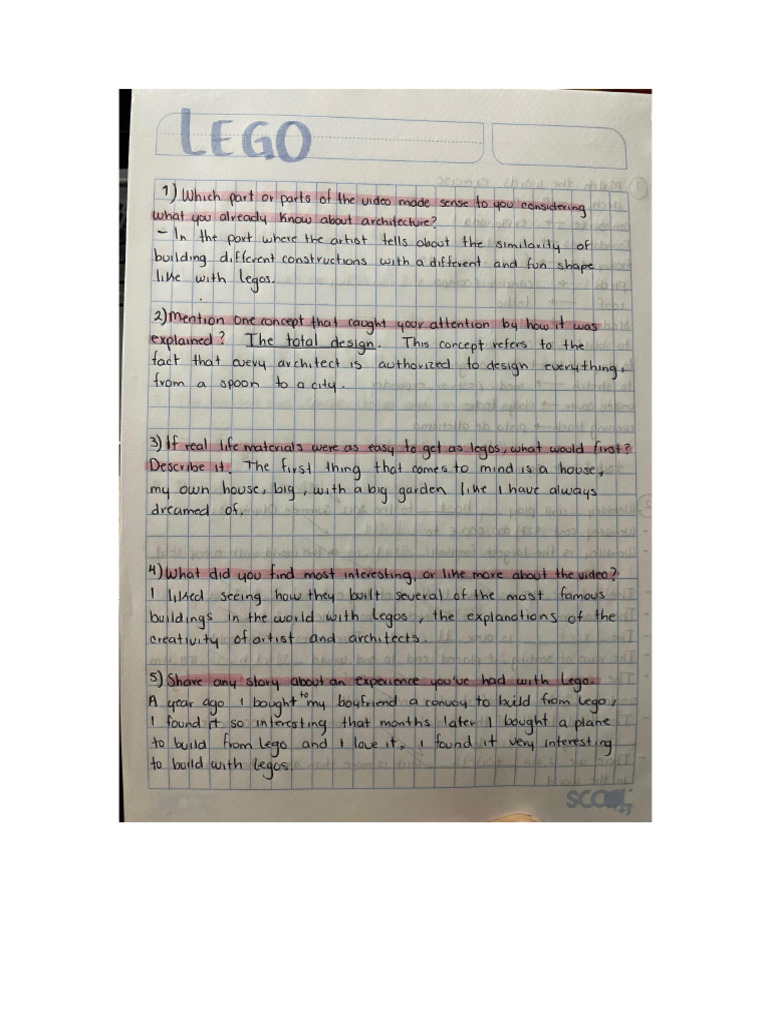 LEGO
1) Which part or parts of the video made sense to you considering
what you already know about architecture?
- In the part where the artist tells about the similarity of
building different constructions with a different and fun shape
like with legos.
2) Mention one concept that caught your attention by how it was
explained? The total design. This concept refers to the
fact that every architect is authorized to design everything,
from a spoon to a city.
3) If real life materials were as easy to get as legos, what would first?
Describe it. The first thing that comes to mind is a house,
my own house, big, with a big garden like I have always
dreamed of.
4) What did you find most interesting, or like more about the video?
I liked seeing how they built several of the most famous
buildings in the world with Legos, the explanations of the
creativity of artist and architects.
5) Share any story about an experience you've had with Lego.
A year ago I bought to my boyfriend a convoy to build from Lego,
I found it so interesting that months later I bought a plane
to build from Lego and I love it, I found it very interesting
to build with Legos.